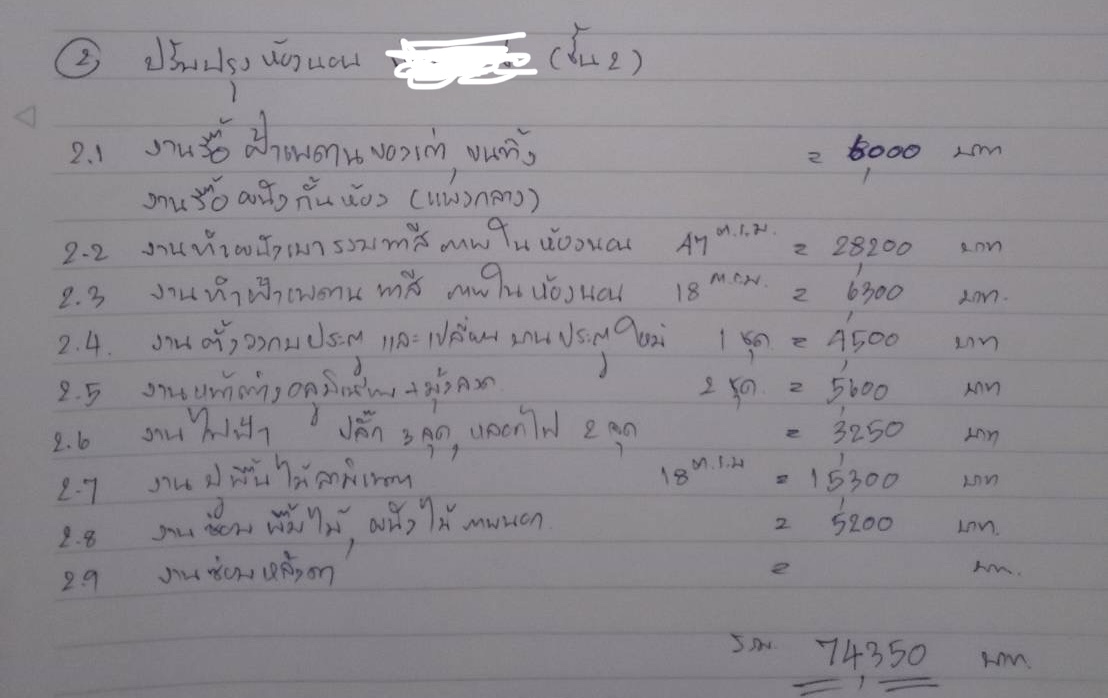 ② ปรับปรุงห้องนอน (ชั้น 2)
2.1 งานรื้อ ฝ้าเพดานของเก่า, ขนทิ้ง = 6,000 บาท
งานรื้อ ผนังกั้นห้อง (แผงกลาง)
2.2 งานทำผนังเบารวมทาสี ภายในห้องนอน 47 ต.ร.ม. = 28,200 บาท
2.3 งานทำฝ้าเพดาน ทาสี ภายในห้องนอน 18 ต.ร.ม. = 6,300 บาท.
2.4. งานตั้งวงกบประตู และเปลี่ยนบานประตูใหม่ 1 ชุด = 4,500 บาท
2.5 งานหน้าต่างอลูมิเนียม + มุ้งลวด 2 ชุด. = 5,600 บาท
2.6 งานไฟฟ้า ปลั๊ก 3 จุด, หลอดไฟ 2 จุด = 3,250 บาท
2.7 งานปูพื้นไม้ลามิเนต 18 ต.ร.ม = 15,300 บาท
2.8 งานซ่อมพื้นไม้, ผนังไม้ ภายนอก = 5,200 บาท.
2.9 งานซ่อมหลังคา = บาท.
รวม. 74,350 บาท.